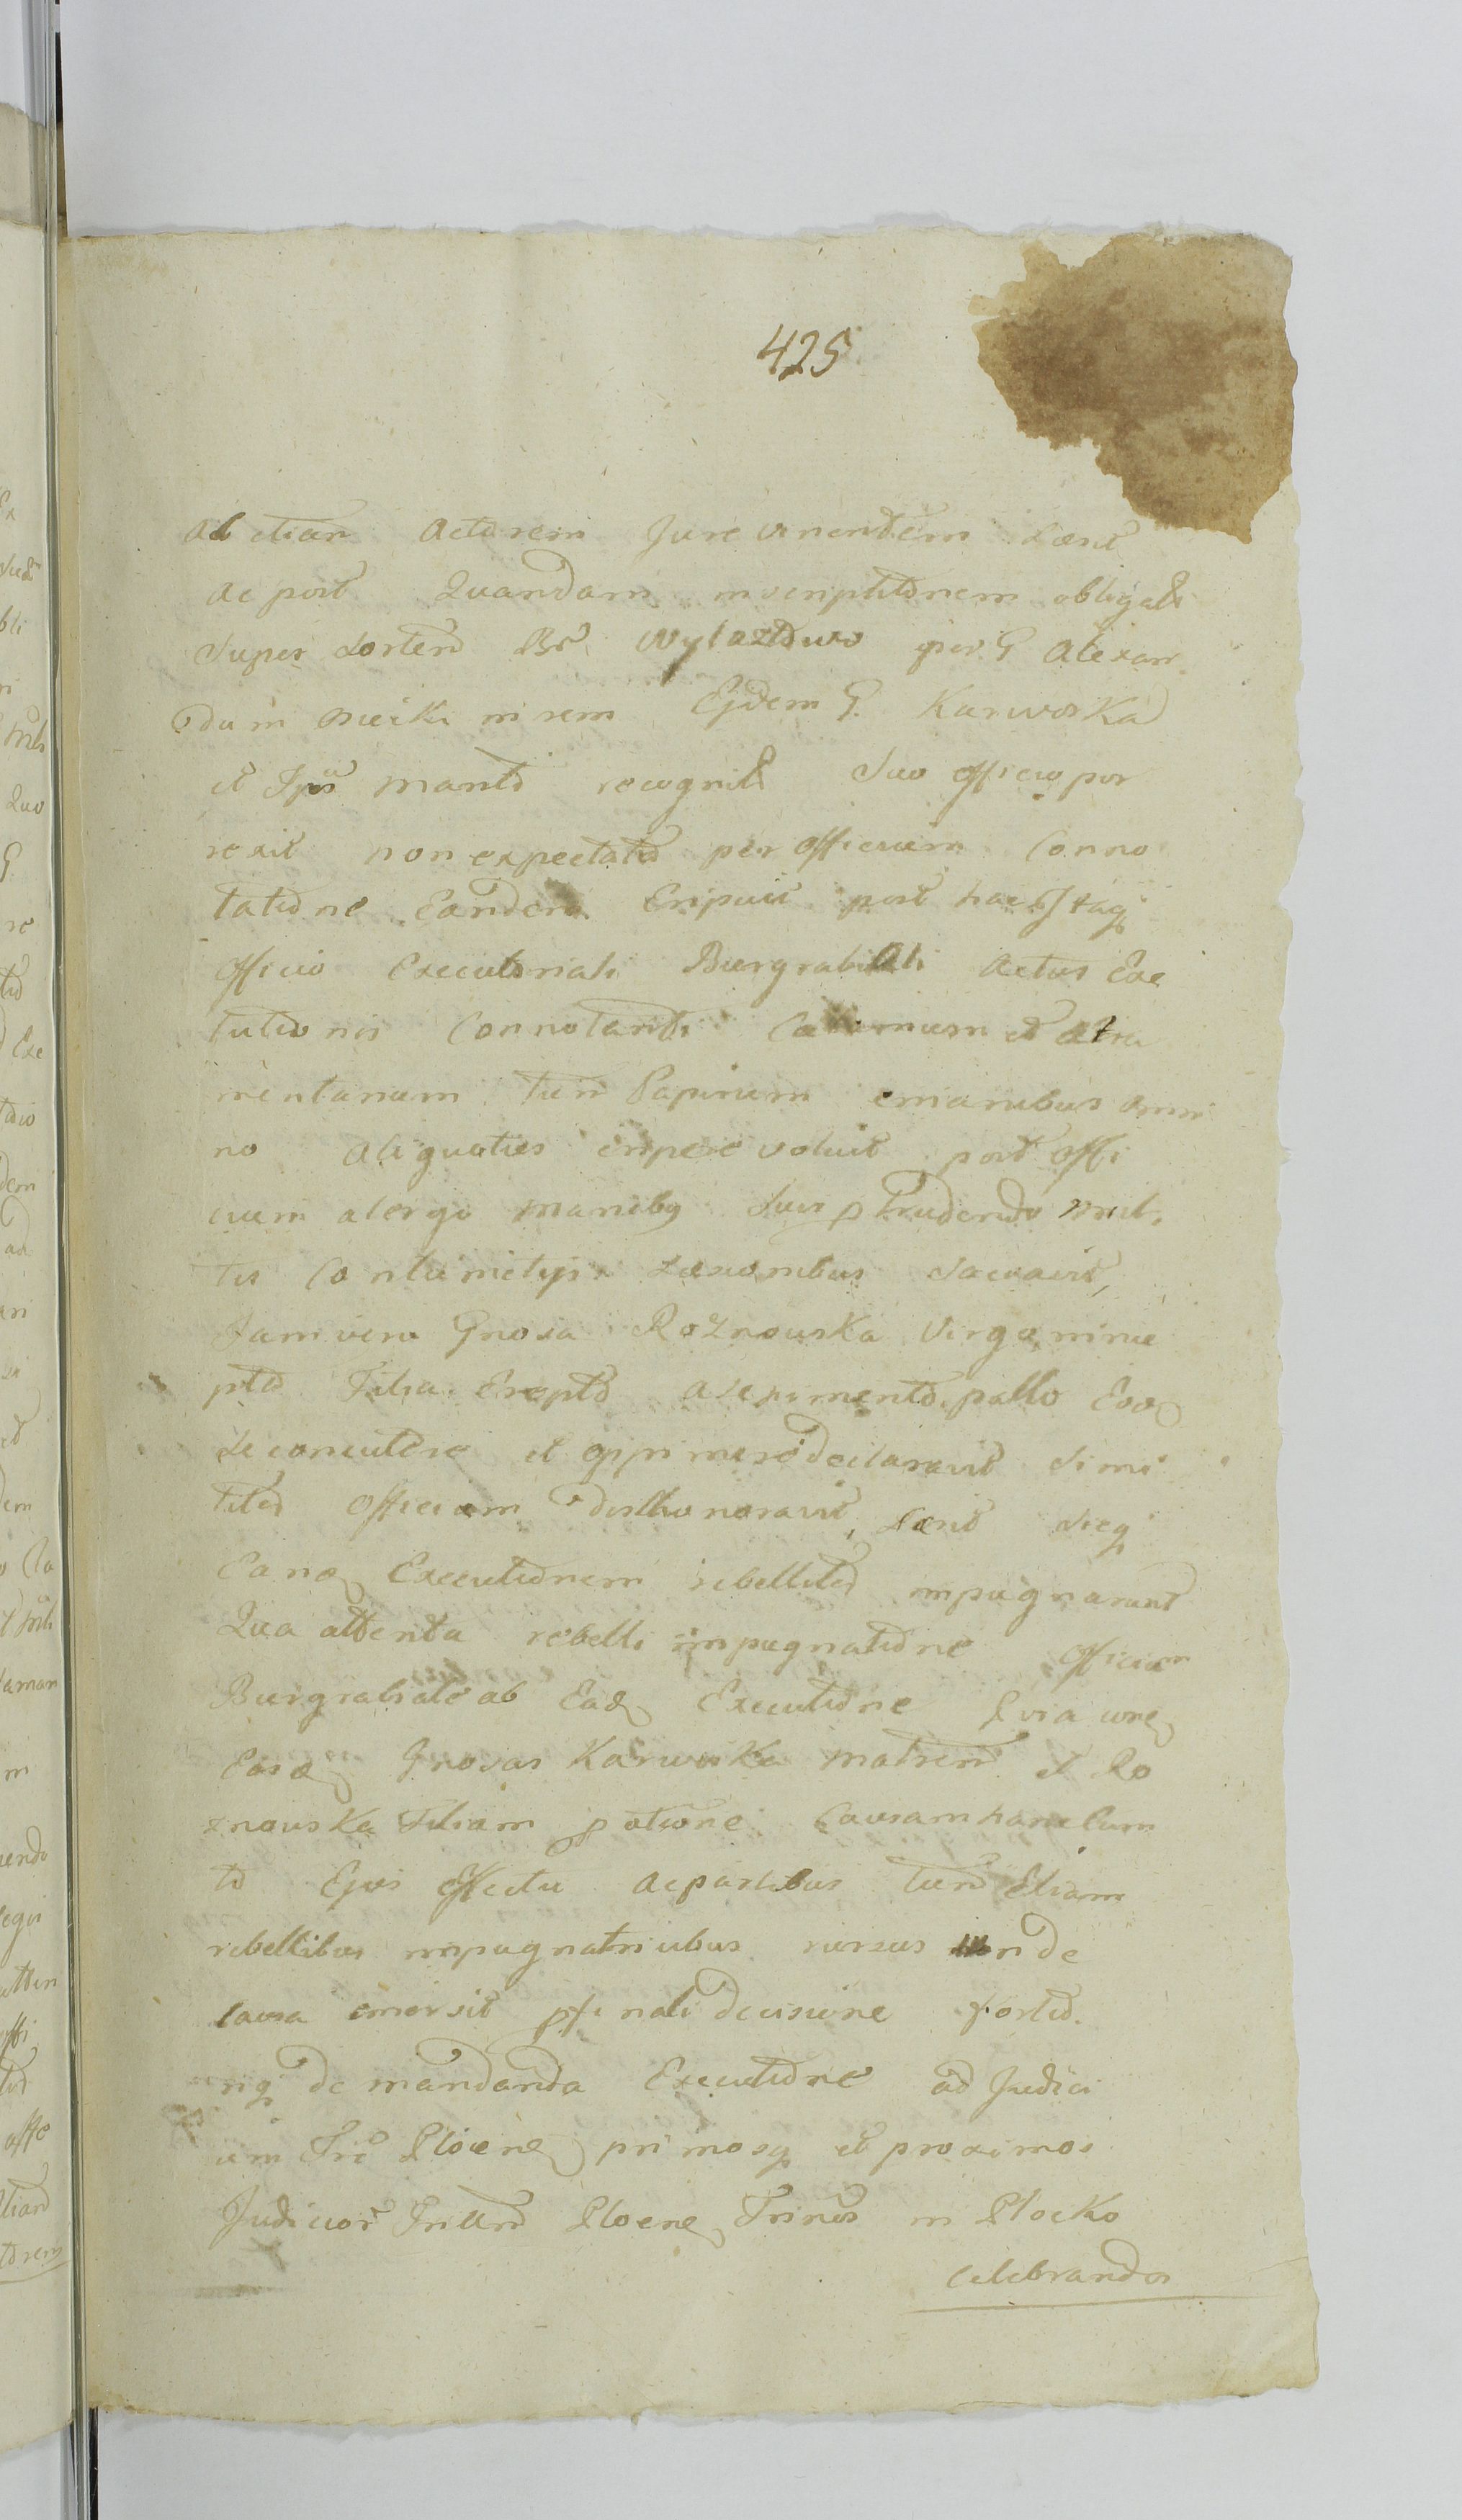 425
ab etiam Actorem Jure vincentem Laesit
ac post Quandam inscriptionem obligatt
super Sortem Br Wylazłowo per G Alexan
drum Mecki in rem Ejdem G. Karwoska
et Ipsi manto recognitt suo officio por
rexit non expectata per officium Conno
tatione Eandem Eripuit post haec Itaq
officio Executoriali Burgrabiali Actus Exe
cutionis Connotandi Calamum et Atra
mentarium tum Papirum e manibus omni
no aliquoties eripere voluit post offi
cium a tergo manibq suis ptrudendo mul
tis Contumelijs Laesionibus Sacravit,
Jam vero Gnosa Roznowska Virgo ninie
pto Filia Erepto a sepimento pallo Eoq
se concutere et opprimere declaravit simi
liter officium dishonoravit, Laesit sicq
Eandq Executionem rebelliter impugnarunt
Qua attenta rebelli impugnatione officium
Burgrabiale ab Eadq Executione
Easdq Gnosas Karwoska matrem et Ro
znowska Filiam patione Causam hanc Cum
to Ejus Effectu ac partibus tum Etiam
rebellibus impugnatricibus rursus unde
causa emersit pfinali decisione fortio
riq demandanda Executione ad Judici
um Tri Plocen primosq et proximos
Judicior Trilium Plocen Trinos in Plocko
celebrandos